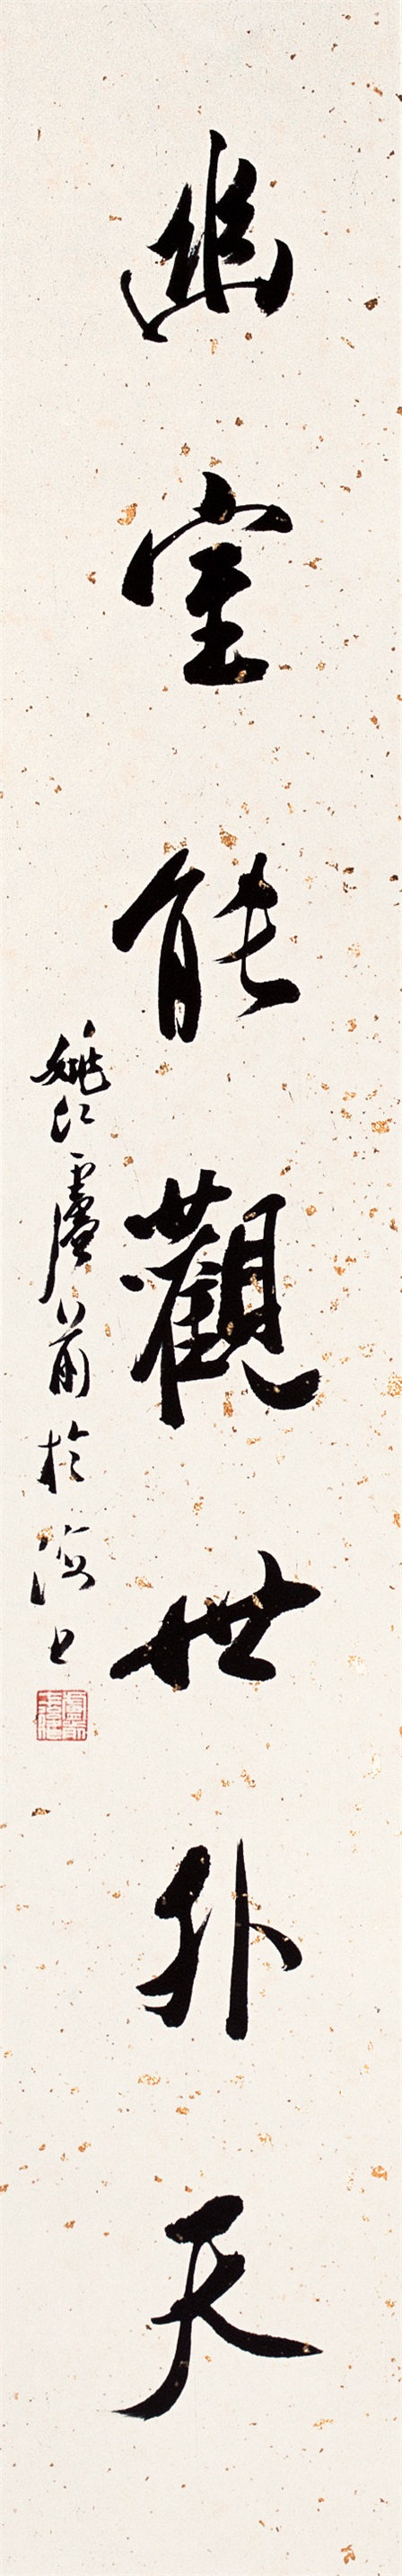 幽室能觀世外天
姚江盧前於海上